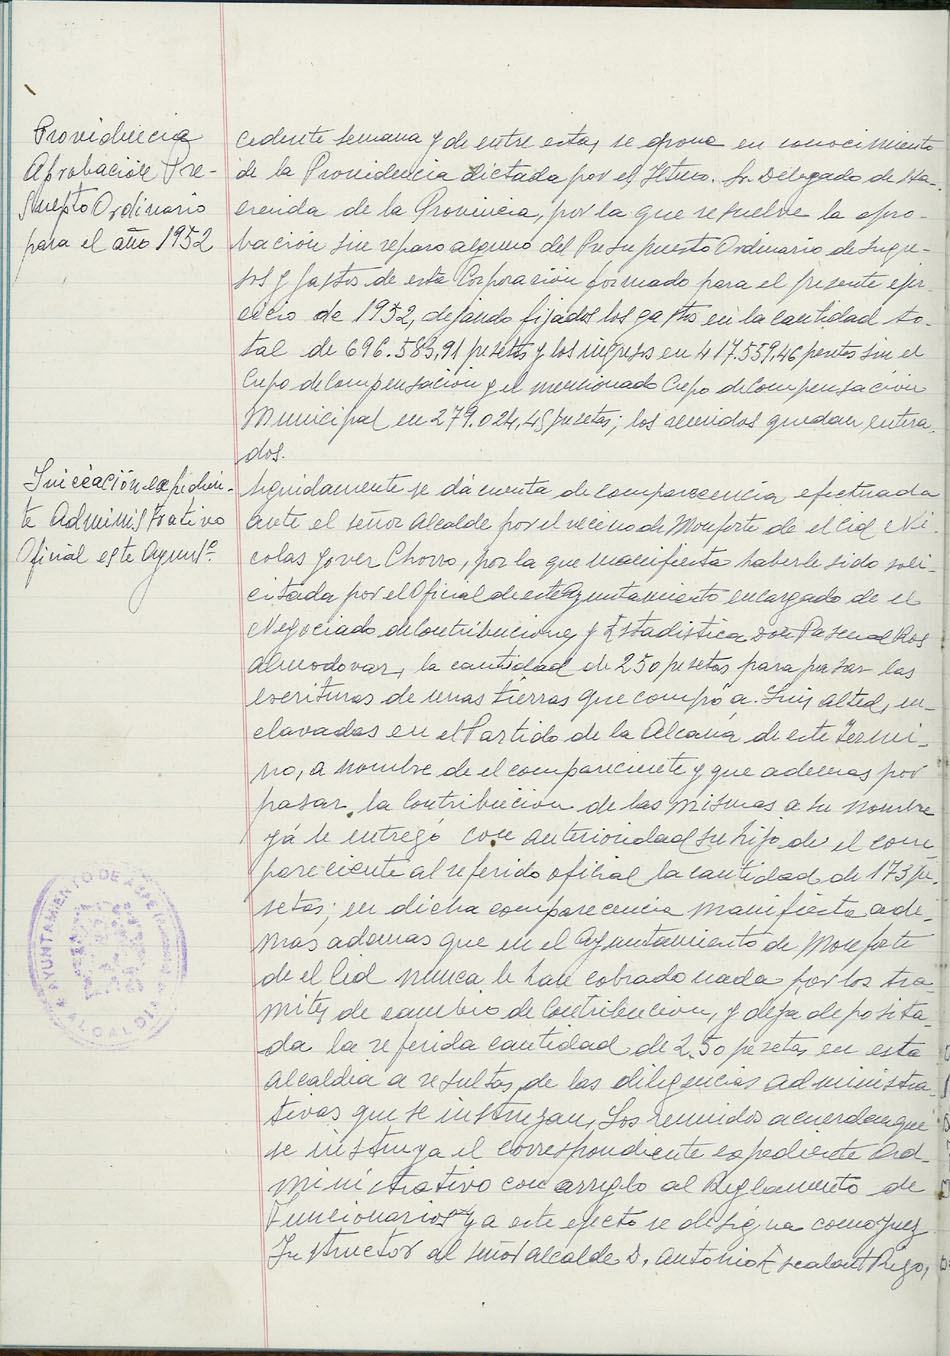 Providencia
Aprobación Pre-
supto Ordinario
para el año 1952
cedente semana y de entre estas, se expone en conocimiento
de la Providencia dictada por el Iltmo. Sr. Delegado de Ha-
cienda de la Provincia, por la que resuelve la apro-
bación sin reparo alguno del Presupuesto Ordinario de Ingre-
sos y gastos de esta Corporación formado para el presente ejer-
cicio de 1952, dejando fijados los gastos en la cantidad to-
tal de 696.583,91 pesetas y los ingresos en 417.559,46 pesetas sin el
Cupo de Compensación y el mencionado Cupo de Compensación
Municipal en 279.024,45 pesetas; los reunidos quedan entera-
dos.
Iniciación expedien-
te Administrativo
Oficial este Ayuntº.
Seguidamente se dá cuenta de comparecencia efectuada
ante el señor Alcalde por el vecino de Monforte de el Cid Ni-
colas Jover Chorro, por la que manifiesta haberle sido soli-
citada por el Oficial de este Ayuntamiento encargado de el
Negociado de Contribuciones y Estadistica Don Pascual Ros
Almodovar, la cantidad de 250 pesetas para pasar las
escrituras de unas tierras que compó a Luis Alted, en-
clavadas en el Partido de la Alcana de este Termi-
no, a nombre de el compareciente y que ademas por
pasar la Contribucion de las mismas a su nombre
yá le entregó con anterioridad su hijo de el com-
pareciente al referido oficial la cantidad de 173 pe-
setas; en dicha comparecencia manifiesta ade-
mas ademas que en el Ayuntamiento de Monforte
de el Cid nunca le han cobrado nada por los tra-
mites de cambio de Contribucion, y deja deposita-
da la referida cantidad de 250 pesetas en esta
alcaldia a resultas de las diligencias administra-
tivas que se instruyan, Los reunidos acuerdan que
se instruya el correspondiente expediente Ad-
ministrativo con arreglo al Reglamento de
Funcionarios y a este efecto se designa como Juez
Instructor al señor alcalde D. Antonio Escalant Rigo,
AYUNTAMIENTO DE ASPE
ALCALDIA